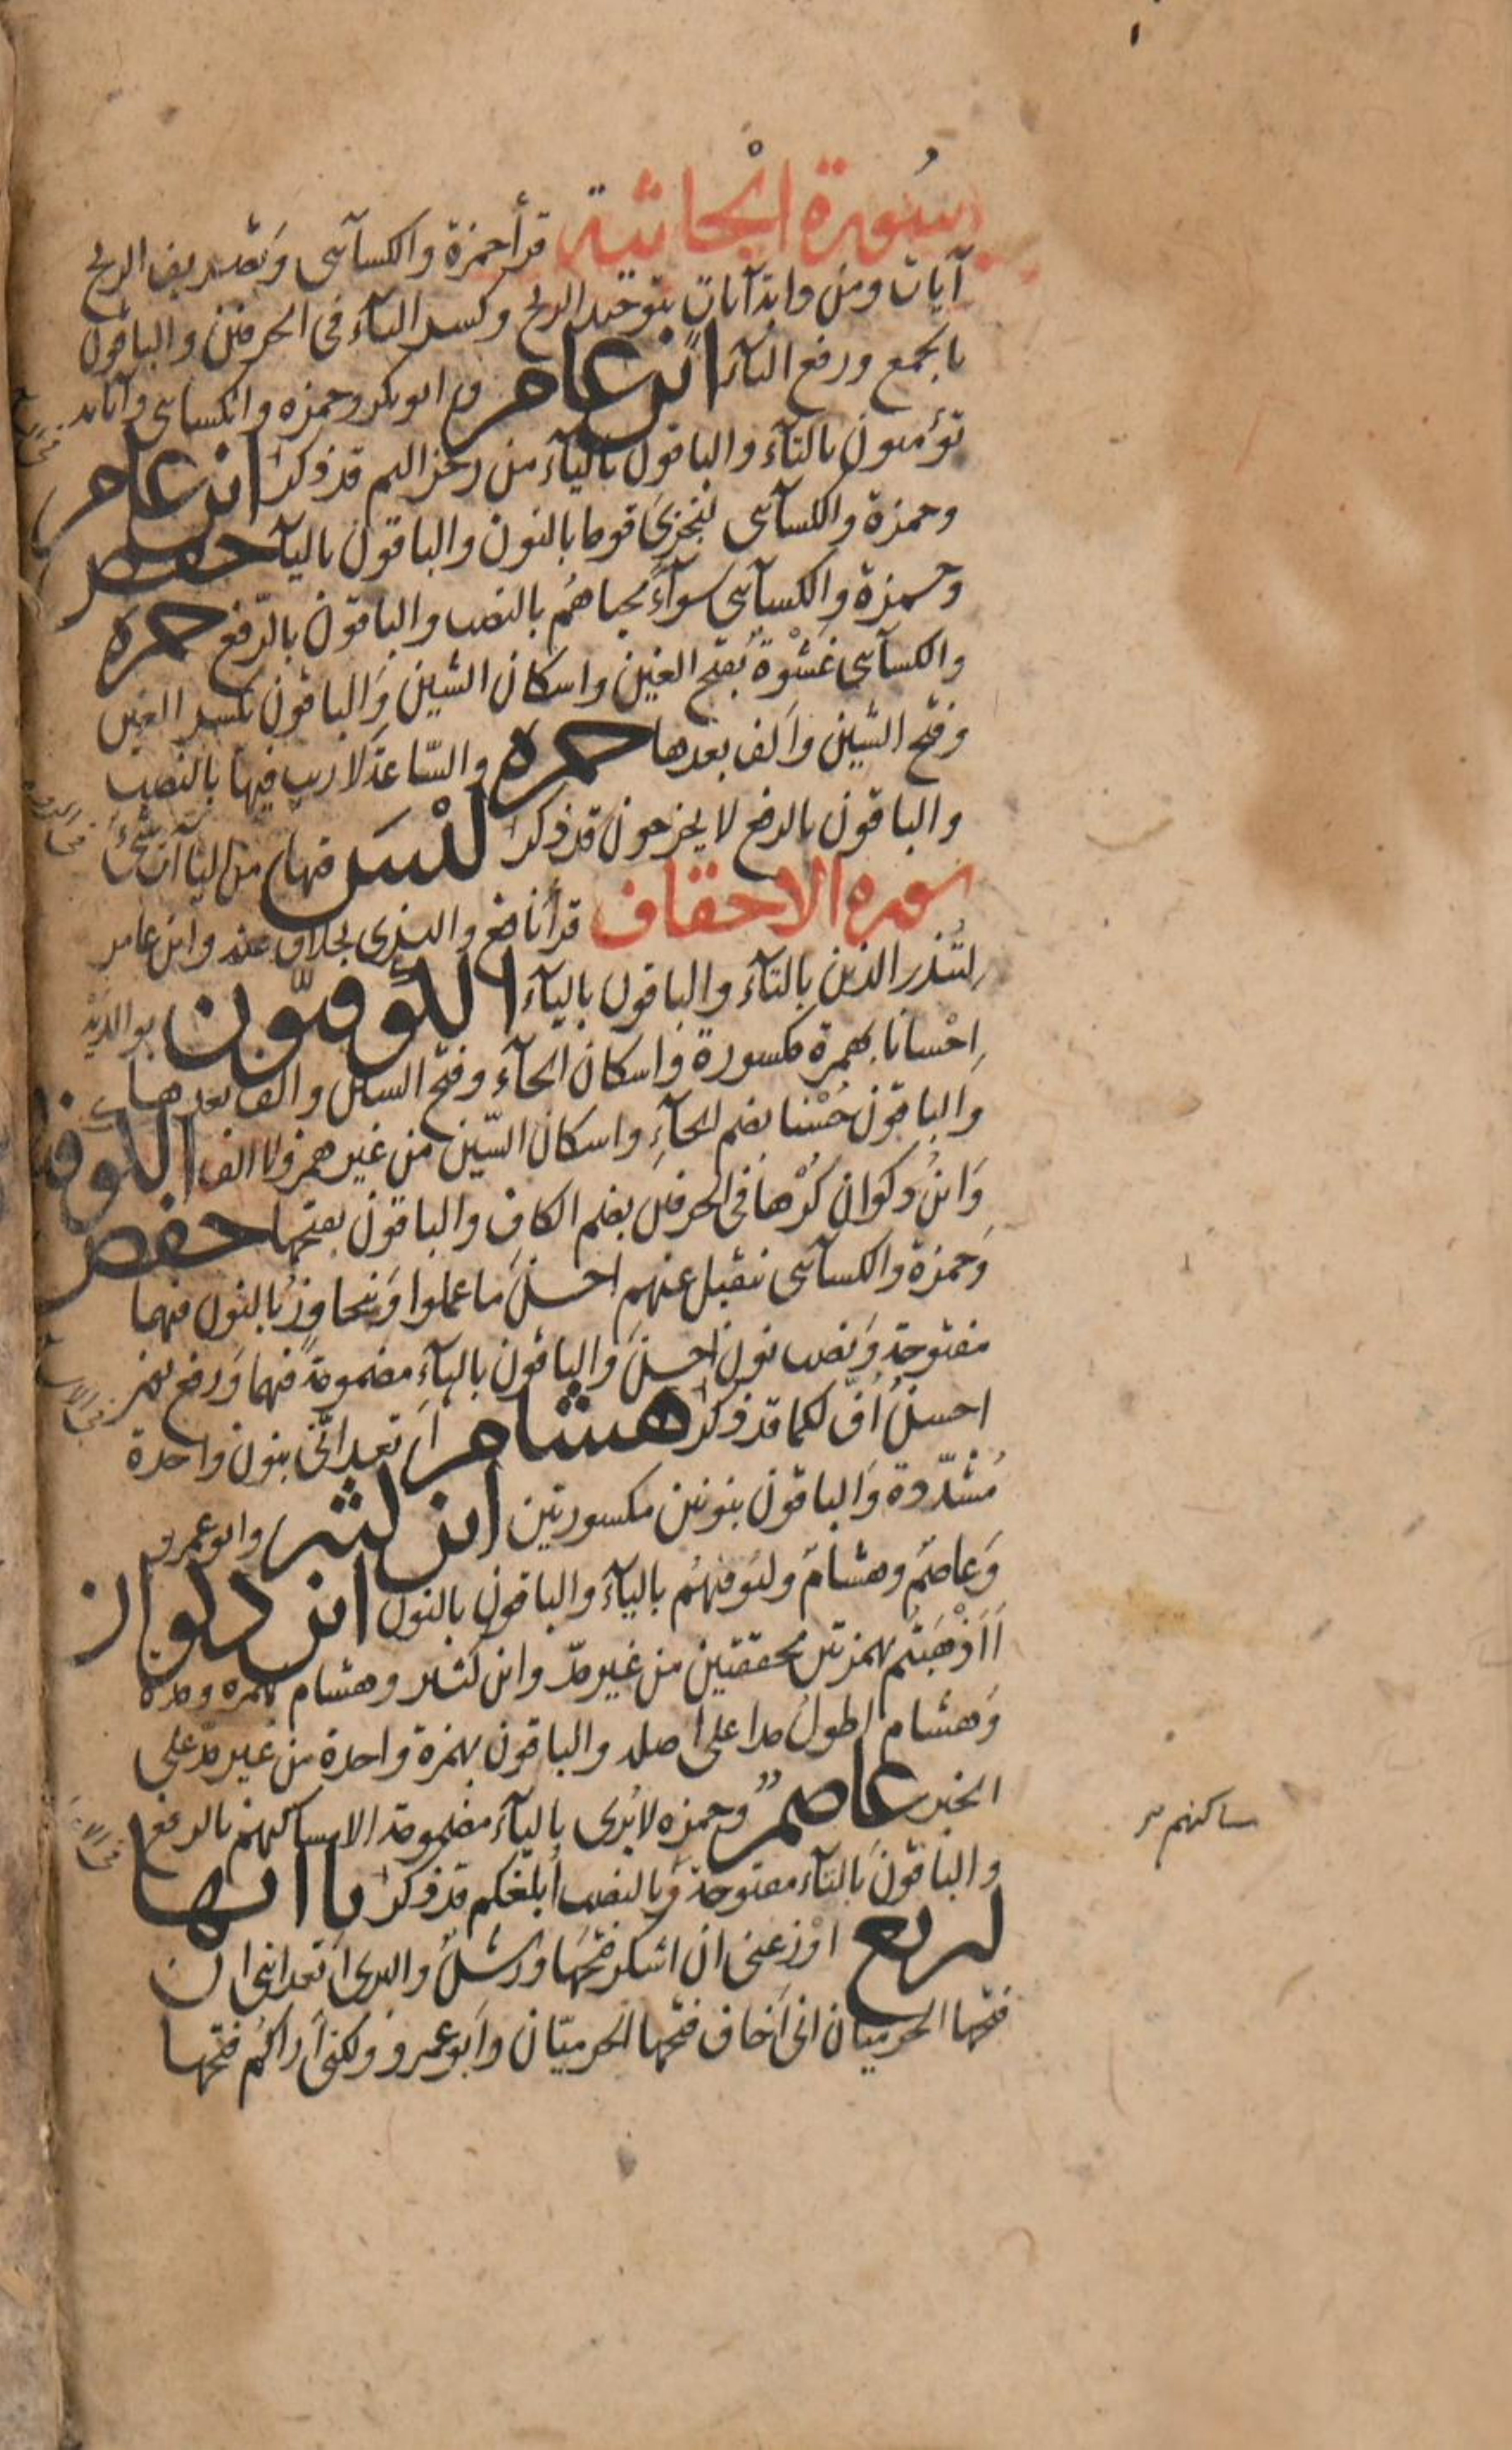 سُورة الجاثية قرأ حمزة والكسآئى وتصريف الريح
آيات ومن دابة آيات بتوحيد الريح وكسر التآء فى الحرفين والباقون
بالجمع ورفع التآء ابن عامر وابو بكر وحمزه والكسائى وآياته
تؤمنون بالتآء والباقون باليآء من رجز اليم قد ذكر ابن عامر
وحمزة والكسآئى لنجزىَ قوما بالنون والباقون باليآ حفص
وحمزة والكسآئى سوآءً محياهُم بالنصب والباقون بالرّفع حمزه
والكسآئى غَشْوَةً بفتح الغين واسكان الشين والباقون بكسر الغين
وفتح الشين وألف بعدها حمزه والسّاعةَ لا ريب فيها بالنصب
والباقون بالرفع لا يخرجون قد ذكر لَيْسَ فيها من اليآآت شىءٌ
سوره الاحقاف قرأ نافع والبزى بخلاف عنه وابن عامر
لِتُنذر الذين بالتآء والباقون باليآء الكوفيّون بوالدَيْه
إحْسانا بهمزة مكسورة واسكان الحآء وفتح السين والف بعدها
والباقون حُسْنا بضم الحآءِ واسكان السّين من غير همز ولا الف الكوفيون
وَابنُ ذكوان كُرْها فى الحرفين بضم الكاف والباقون بفتحها حفص
وَحمزة والكسآئى نتقبل عنهم احسنَ ما عملوا وَنتجاوزُ بالنون فيهما
مفتوحة وَنصب نون احسنَ والباقون باليآءِ مضمومة فيهما وَرفع نون
احسنُ أُفّ لكما قد ذكر هشام أتعدانّى بنون واحدة
مُشدّدة وَالباقون بنونين مكسورتين ابن كثير وابو عمرو
وَعاصمٌ وهشامٌ وليُوفيَهُم باليآء والباقون بالنون ابن ذكوان
أَأَذْهَبتُم بهمزتين محققتين من غير مدّ وابن كثير وهشام بهمزه ومدة
وَهشام اطولُ مدا على اصله والباقون بهمزة واحدة من غير مدّ على
الخبر عاصمٌ وحمزه لا يُرى باليآء مضمومة الا مساكنهم بالرفع
والباقونَ بالتآء مفتوحة وَبالنصب أبلّغكم قد ذكر يا آتها
اربع اوزعنى ان اشكر فتحَها ورشٌ والبزى أتعداننى ان
فتحها الحرميّان انى أخاف فتحها الحرميّان وَأبو عمرو ولكنى أراكم فتحها
ساكنهم